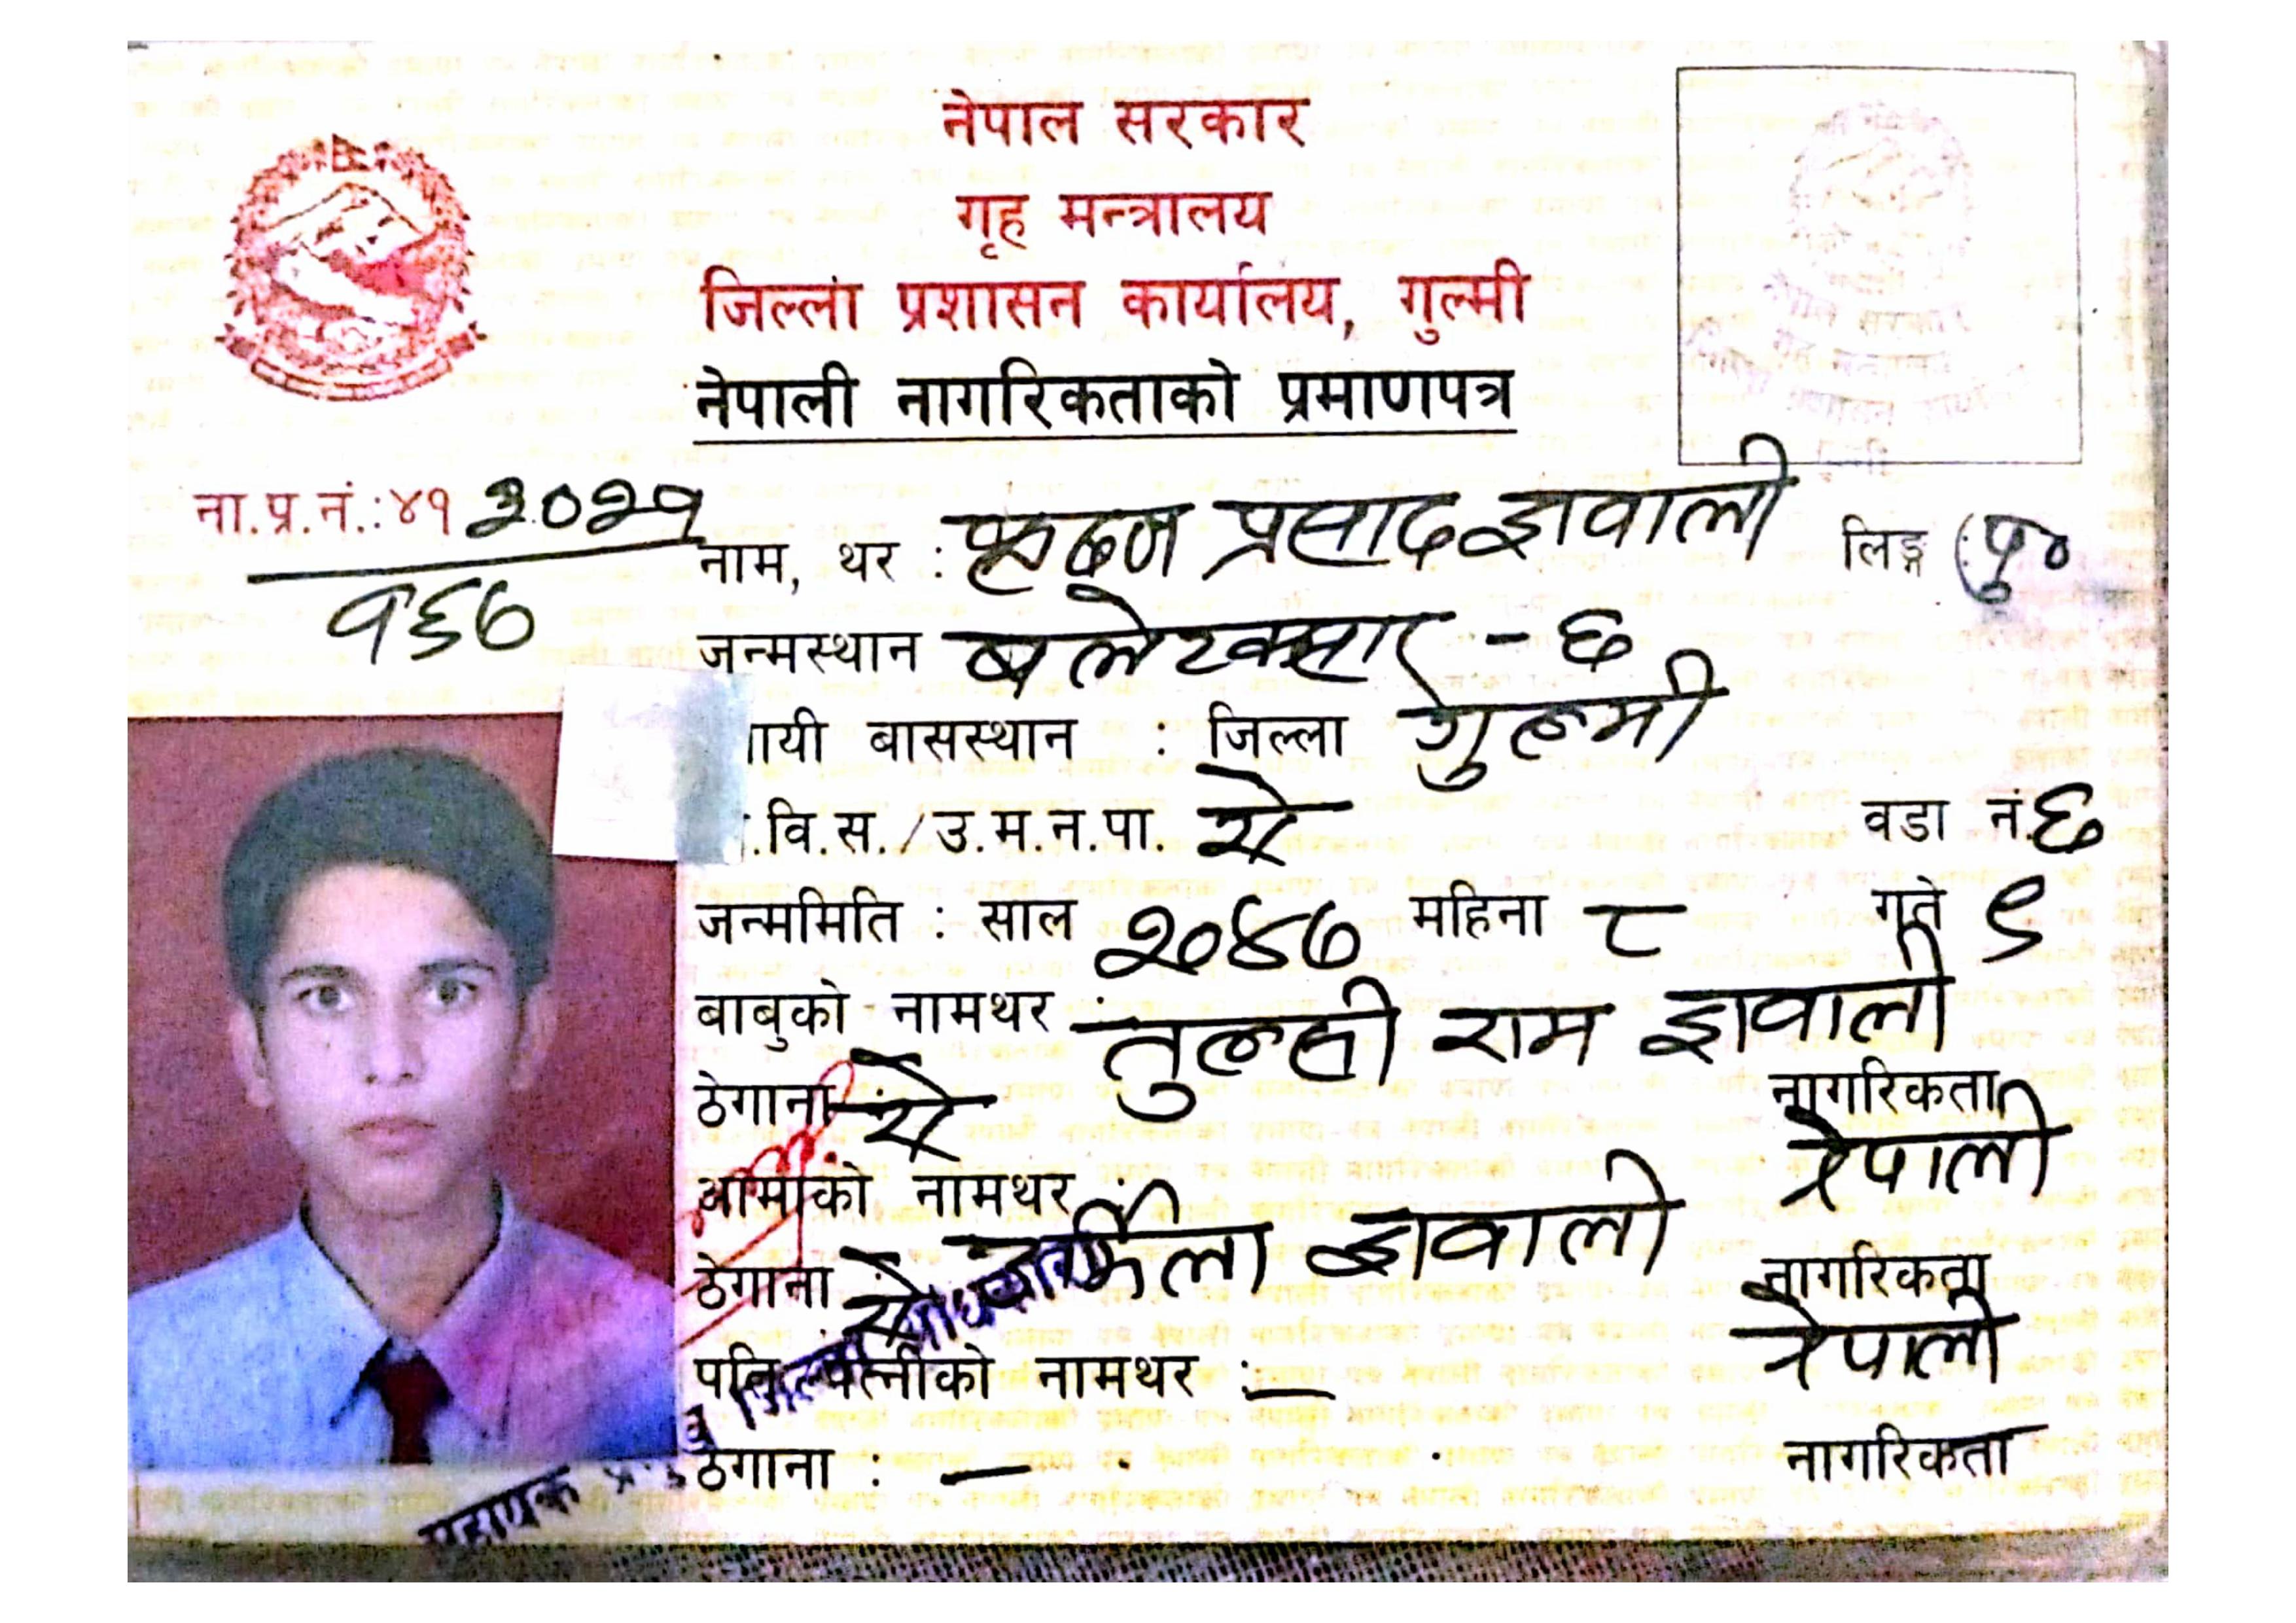 नेपाल सरकार
गृह मन्त्रालय
जिल्ला प्रशासन कार्यालय, गुल्मी
नेपाली नागरिकताको प्रमाणपत्र
ना.प्र.नं.:४१ २०२१
१६७
नाम, थर : प्रसाद ज्ञवाली लिङ्ग : पु०
जन्मस्थान बलेटक्सार - ६
ायी बासस्थान : जिल्ला गुल्मी
.वि.स./उ.म.न.पा. ऐ वडा नं ६
जन्ममिति : साल २०४७ महिना ८ गते ९
बाबुको नामथर : तुलसी राम ज्ञवाली
ठेगाना : ऐ नागरिकता
नेपाली
आमाको नामथर : ज्ञवाली
ठेगाना : ऐ नागरिकता
नेपाली
पति/पत्नीको नामथर : —
ठेगाना : — नागरिकता